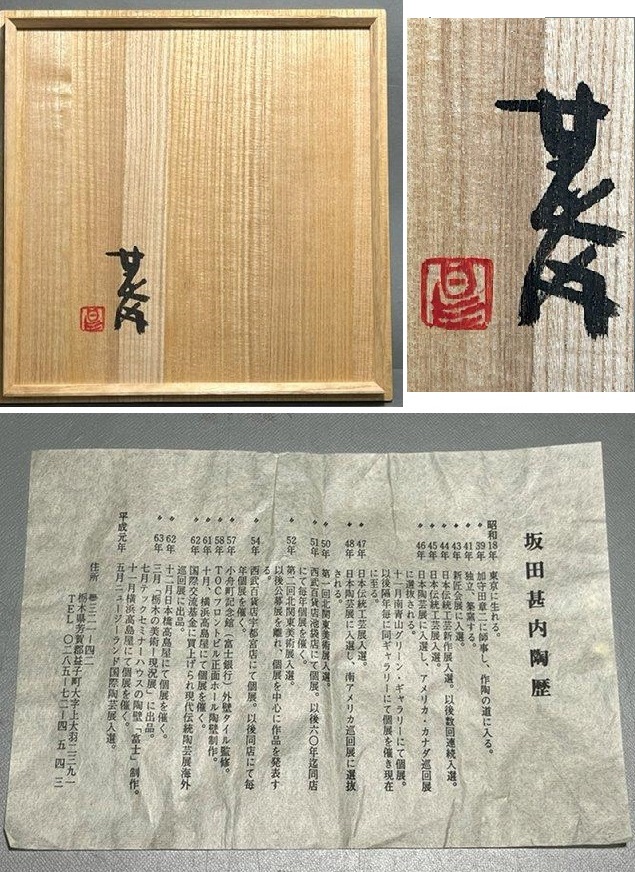 甚内
甚内
坂田甚内陶歴
昭和18年 東京に生れる。
〃39年 加守田章二に師事し、作陶の道に入る。
〃41年 独立、築窯する。
〃43年 新匠会展に入選。
〃44年 日本伝統工芸新作展入選。以後数回連続入選。
〃45年 日本伝統工芸展入選。
〃46年 日本陶芸展に入選し、アメリカ・カナダ巡回展
に選抜される。
十一月南青山グリーン・ギャラリーにて個展。
以後隔年毎に同ギャラリーにて個展を催き現在
に至る。
〃47年 日本伝統工芸展入選。
〃48年 日本陶芸展に入選し、南アメリカ巡回展に選抜
される。
〃50年 第一回北関東美術展入選。
〃51年 西武百貨店池袋店にて個展。以後六〇年迄同店
にて毎年個展を催く。
〃52年 第二回北関東美術展入選。
以後公募展を離れ、個展を中心に作品を発表す
る。
〃54年 西武百貨店宇都宮店にて個展。以後同店にて毎
年個展を催く。
〃57年 小舟町記念館(富士銀行)外壁タイル監修。
〃58年 TOCフロントビル正面ホール陶壁制作。
〃61年 十月、横浜高島屋にて個展を催く。
〃62年 国際交流基金に買上げられ現代伝統陶芸展海外
巡回展に出品。
〃62年 十二月日本橋高島屋にて個展を催く。
〃63年 三月「栃木の美術」現況展」に出品。
七月テックセミナーハウスの陶壁「富士」制作。
十一月横浜高島屋にて個展を催く。
平成元年 五月ニュージーランド国際陶芸展入選。
住所 〒三二一―四二
栃木県芳賀郡益子町大字上大羽二三九一
TEL 〇二八五―七二―四五四三